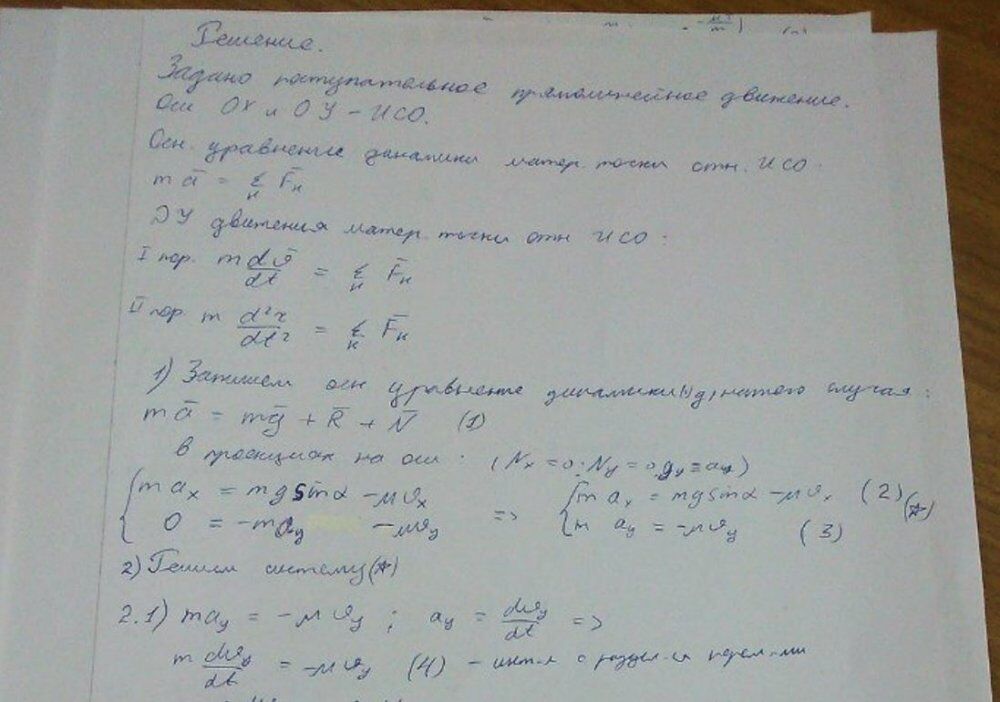 Решение.
Задано поступательное прямолинейное движение.
Оси OX и OY – ИСО.
Осн. уравнение динамики матер. точки отн. ИСО.
m a̅ = Σ_к F̅_к
ДУ движения матер. точки отн ИСО:
I пор. m dυ̅/dt = Σ_к F̅_к
II пор. m d²r/dt² = Σ_к F̅_к
1) Запишем осн уравнение динамики нашего случая:
m a̅ = m g̅ + R̅ + N̅ (1)
в проекциях на оси: (N_x = 0; N_y = 0, g_y = a_y)
{ m a_x = mg sin α – μυ_x => { m a_x = mg sin α – μυ_x (2) (*)
0 = -m a_y – μυ_y m a_y = -μυ_y (3)
2) Решим систему (*)
2.1) m a_y = -μυ_y ; a_y = dυ_y/dt =>
m dυ_y/dt = -μυ_y (4) –